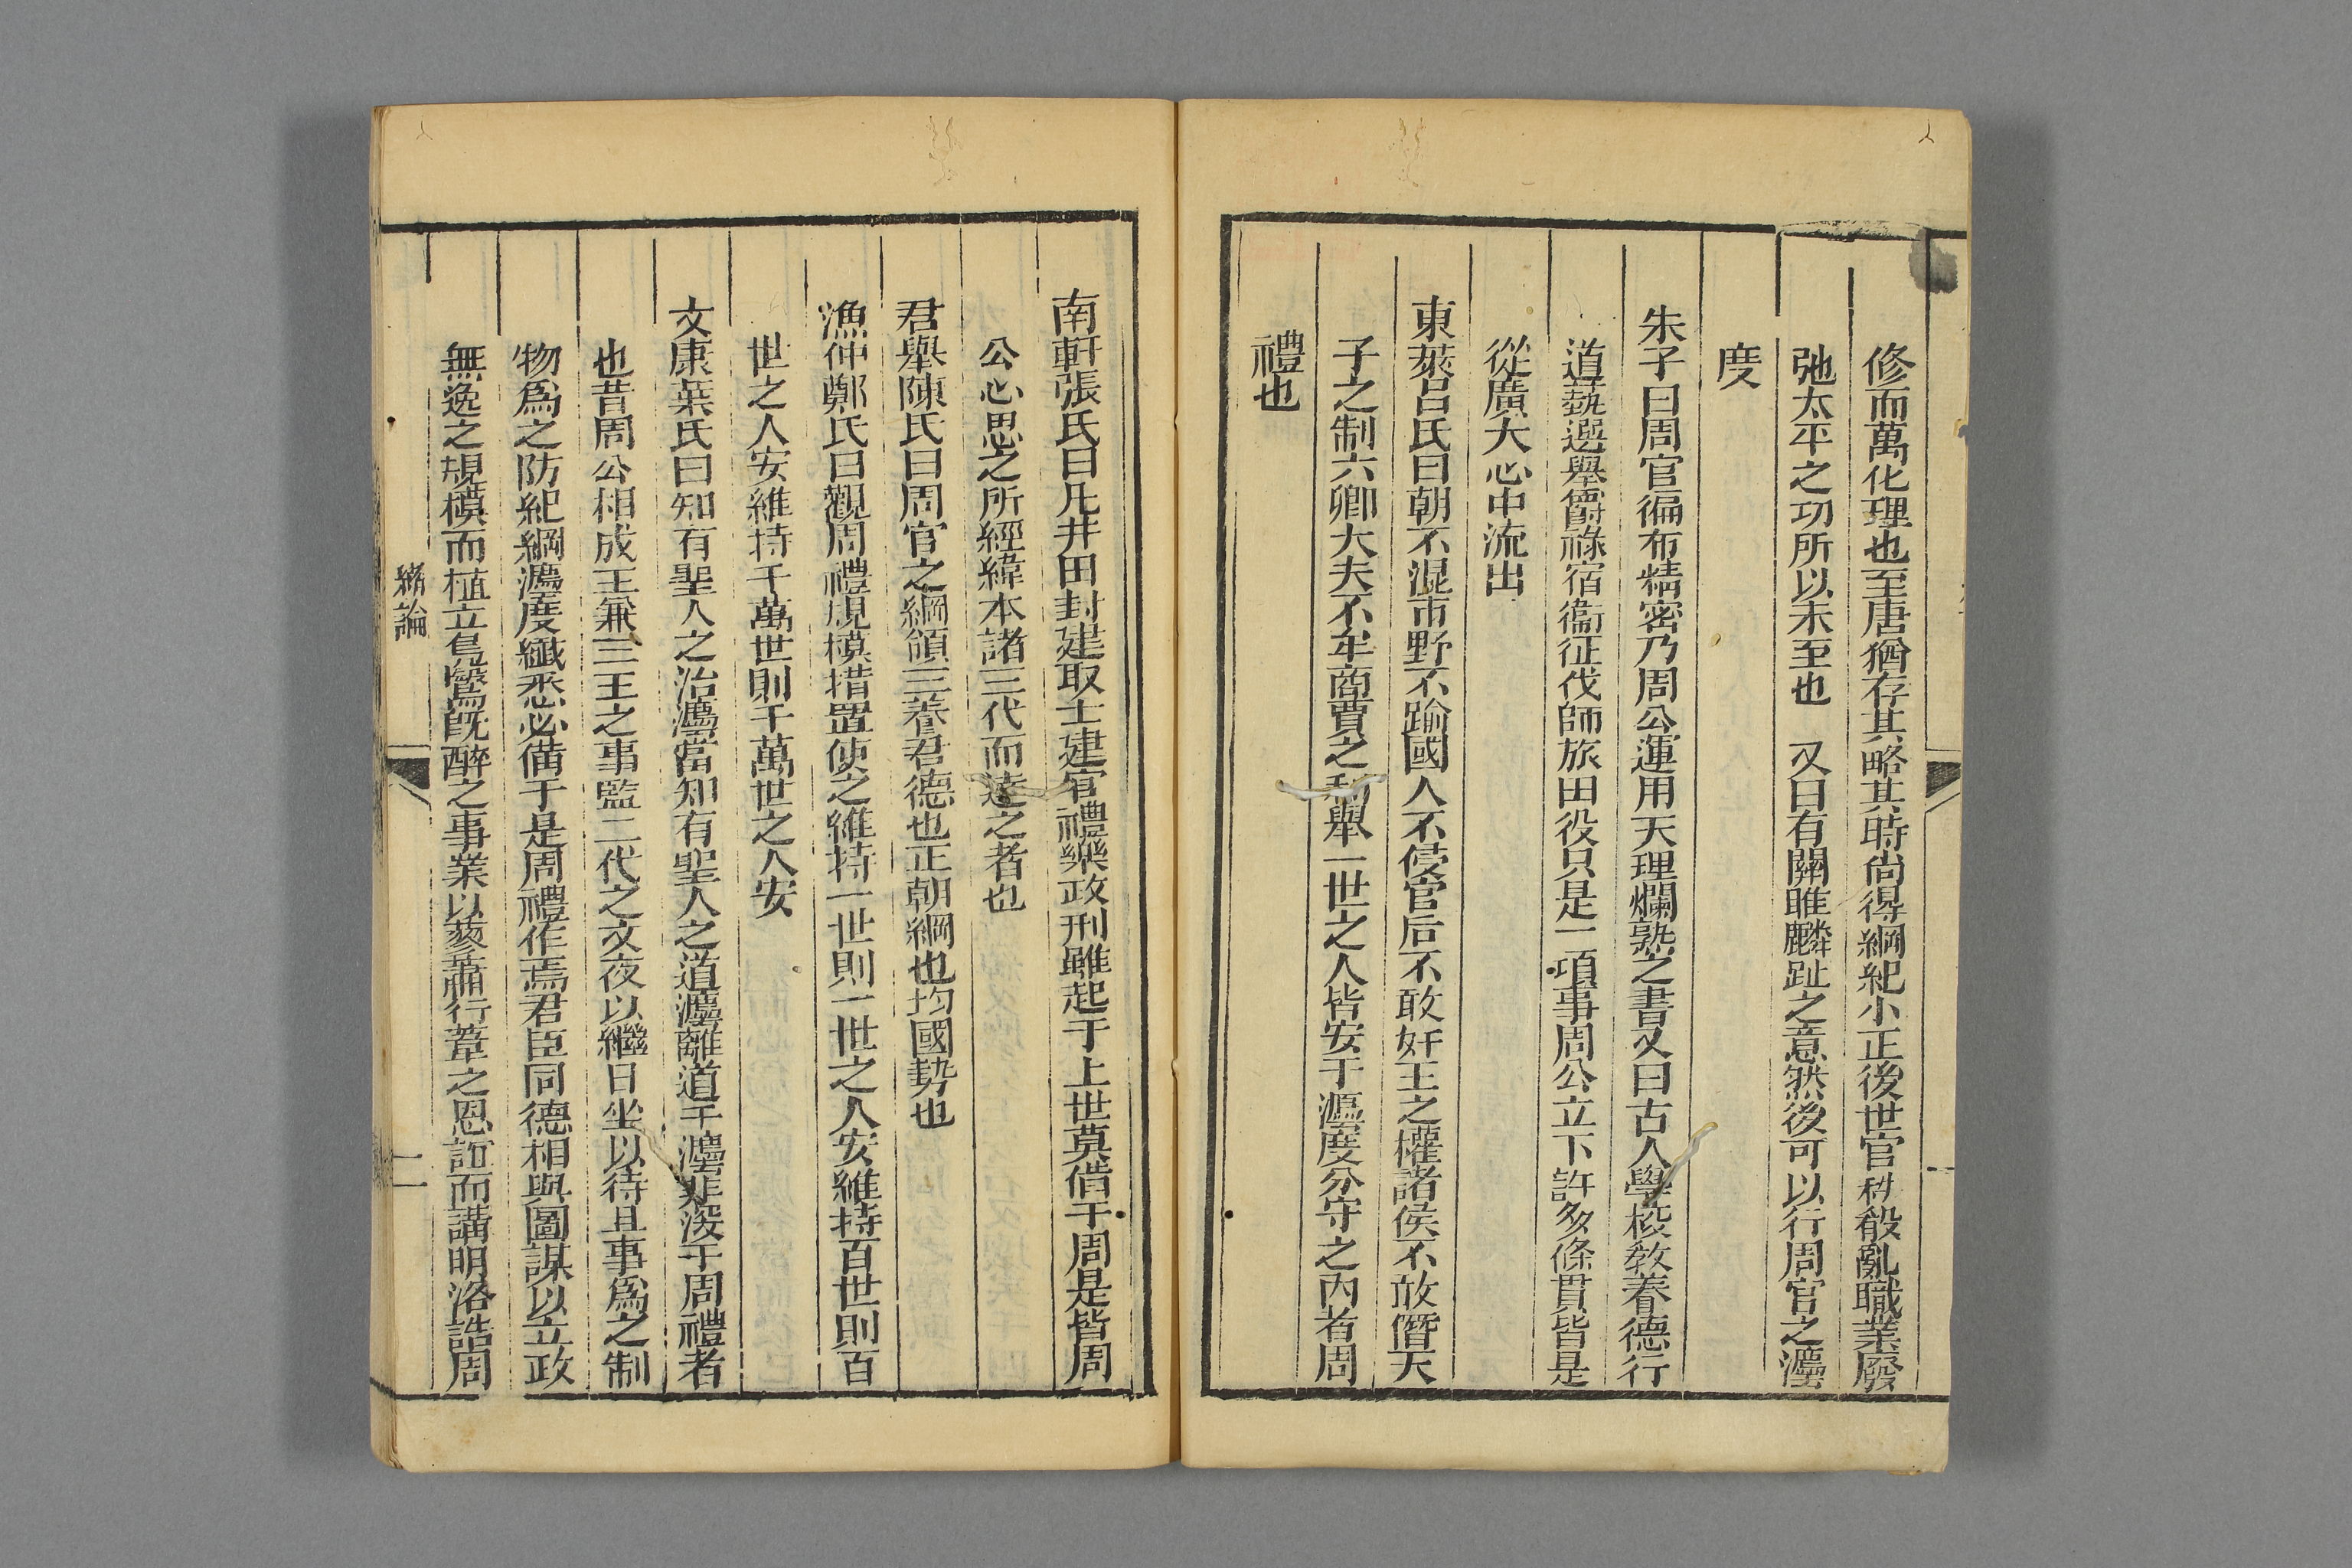 修而萬化理也至唐猶存其略其時尙得綱紀小正後世官秩殽亂職業廢
弛太平之功所以未至也　又曰有關雎麟趾之意然後可以行周官之灋
度
朱子曰周官徧布精密乃周公運用天理爛熟之書又曰古人學校敎養德行
道藝選舉爵祿宿衞征伐師旅田役只是一項事周公立下許多條貫皆是
從廣大心中流出
東萊呂氏曰朝不混市野不踰國人不侵官后不敢奸王之權諸侯不敢僭天
子之制六卿大夫不牟商賈之利舉一世之人皆安于灋度分守之內者周
禮也
南軒張氏曰凡井田封建取士建官禮樂政刑雖起于上世莫備于周是皆周
公心思之所經緯本諸三代而達之者也
君舉陳氏曰周官之綱領三養君德也正朝綱也均國勢也
漁仲鄭氏曰觀周禮規模措置使之維持一世則一世之人安維持百世則百
世之人安維持千萬世則千萬世之人安
文康葉氏曰知有聖人之治灋當知有聖人之道灋離道于灋非深于周禮者
也昔周公相成王兼三王之事監二代之文夜以繼日坐以待旦事爲之制
物爲之防紀綱灋度纖悉必備于是周禮作焉君臣同德相與圖謀以立政
無逸之規模而植立鳧鷖旣醉之事業以蓼蕭行葦之恩誼而講明洛誥周
緫論
二